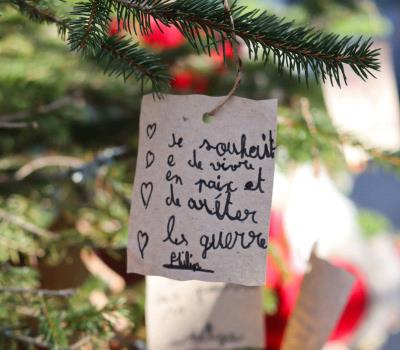 je souhait
e de vivre
en paix et
de arréter
les guerre
Philip